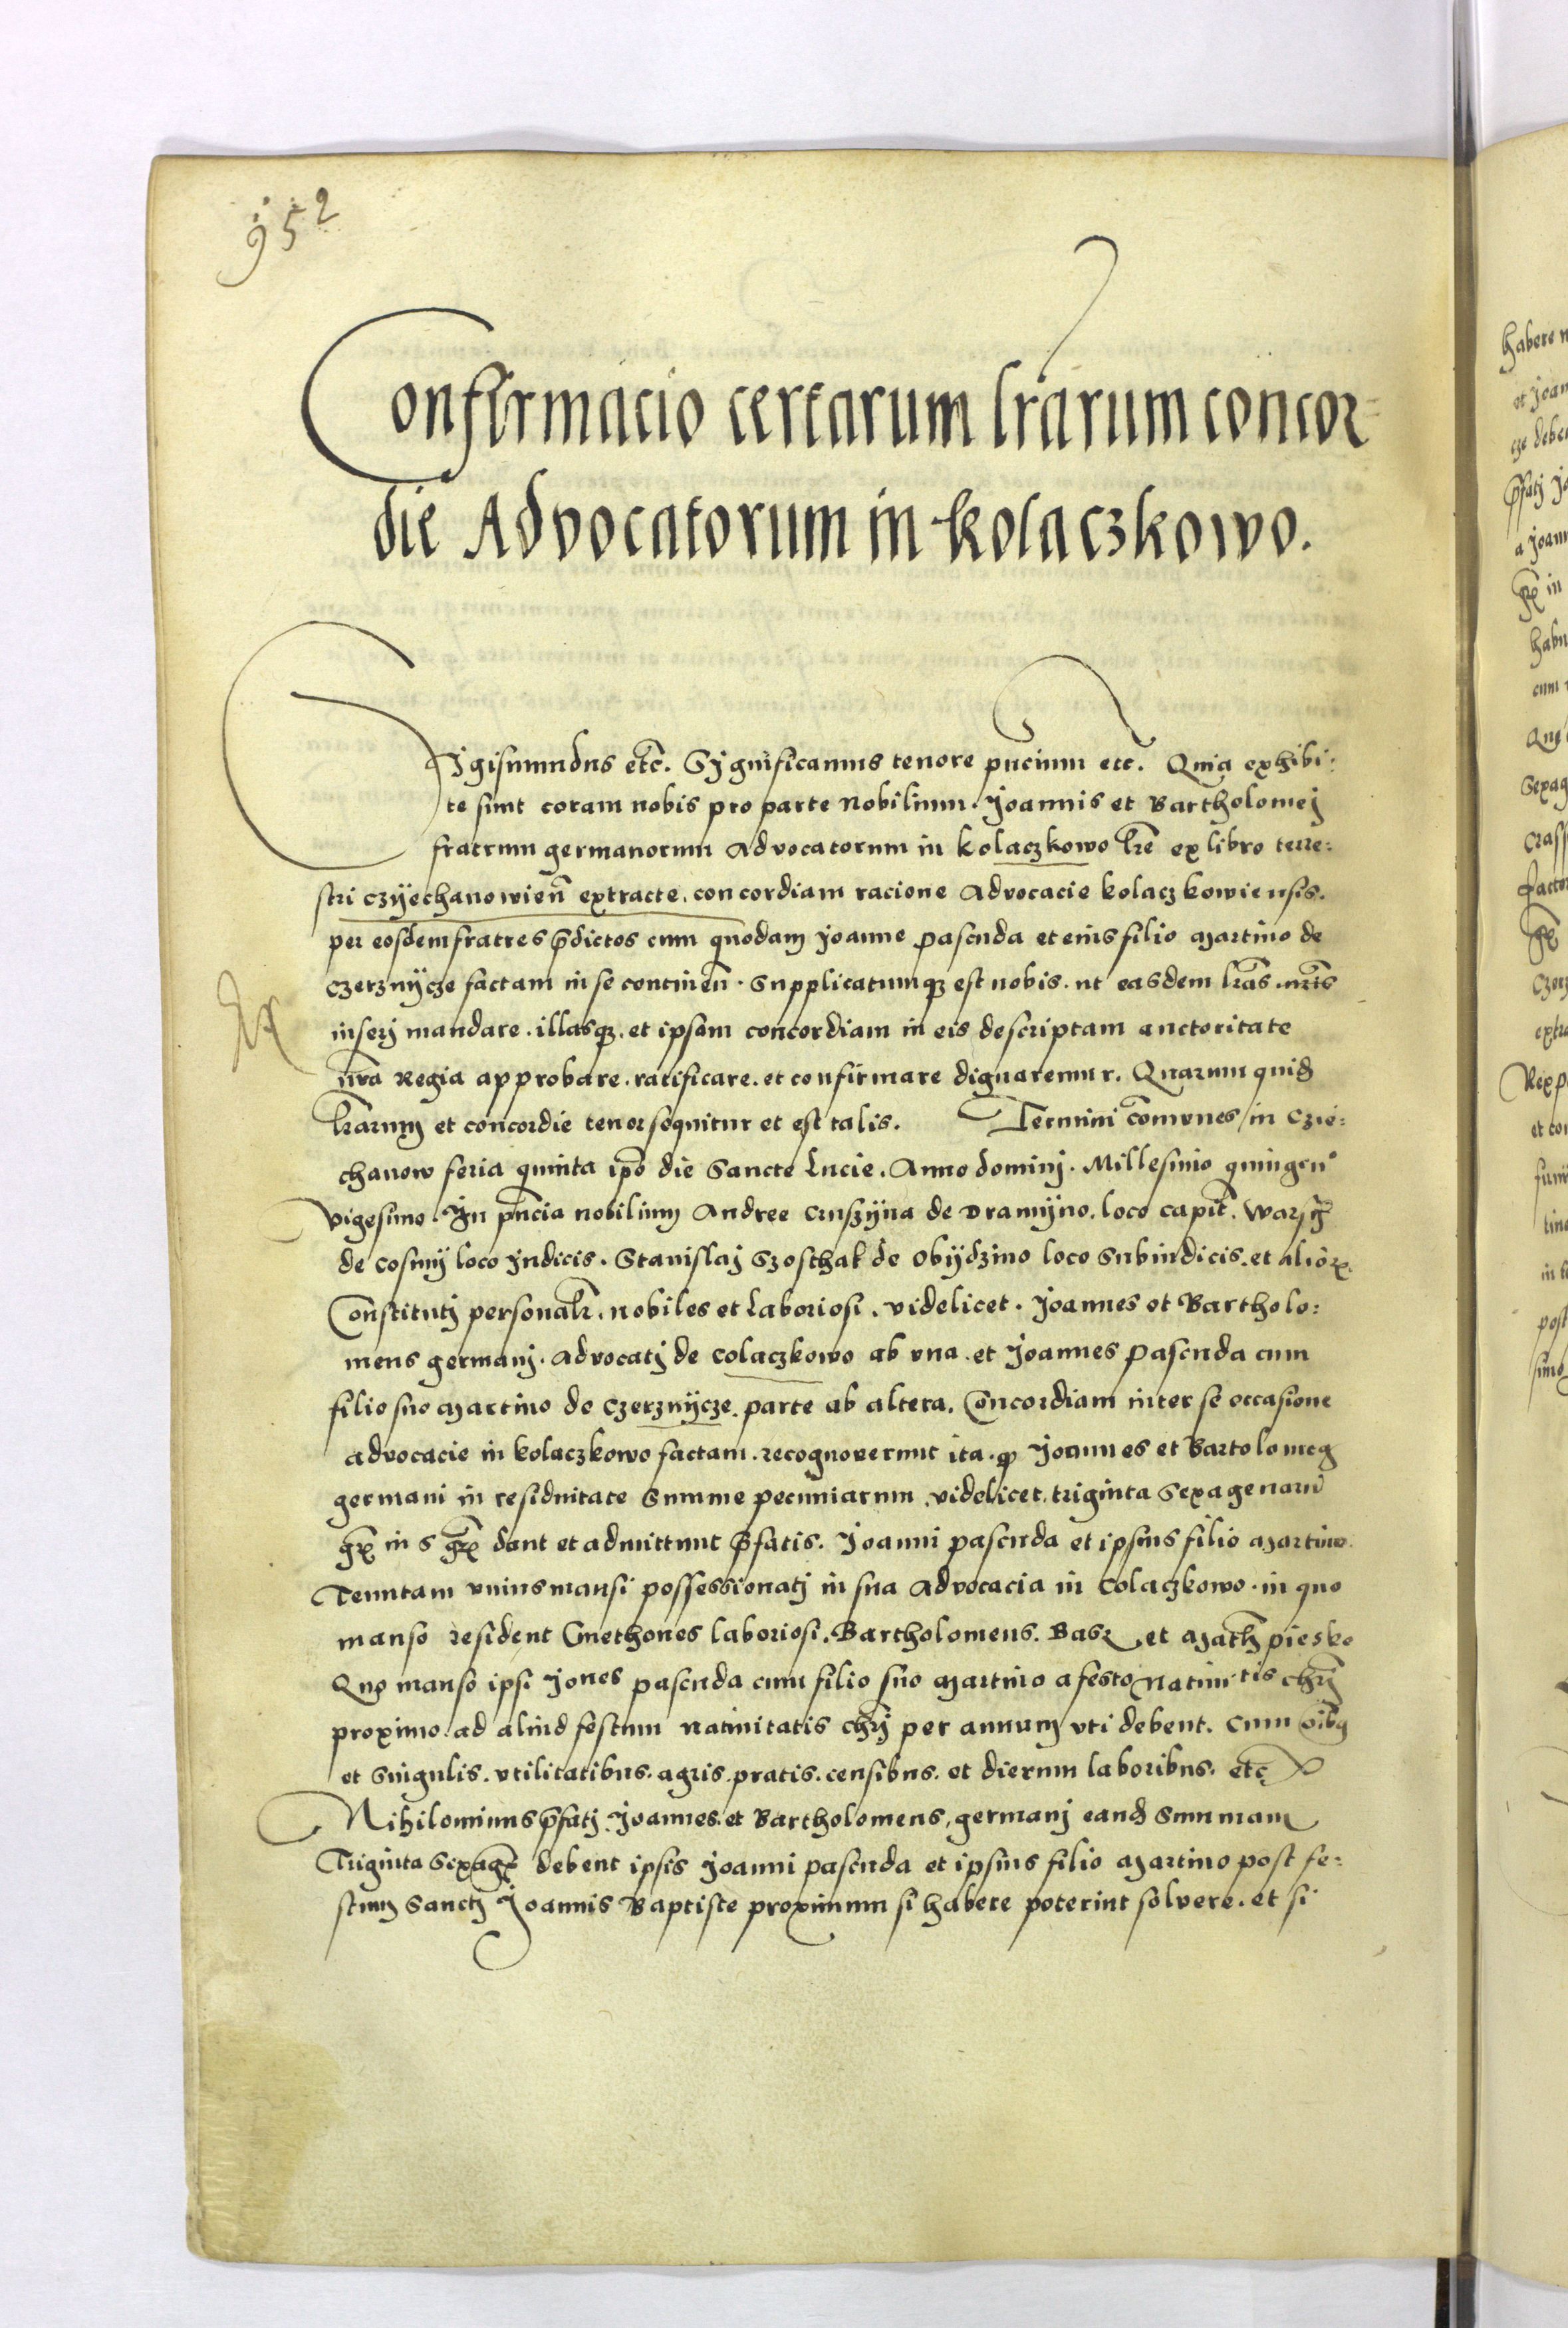 952
Confirmacio certarum lrarum concor=
die Advocatorum in Kolaczkowo.
Sigismundus etc. Significamus tenore pncium etc. Quia exhibi:
te sunt coram nobis pro parte Nobilium. Joannis et Bartholomei
fratrum germanorum Advocatorum in Kolaczkowo lre ex libro terre:
stri Czyechanowien extracte. concordiam racione Advocacie Kolaczkowiensis.
per eosdem fratres pdictos cum quodam Joanne pascuda et eius filio Martino de
Czerznycze factam in se continen. Supplicatumq est nobis. ut easdem lras. nris
inserj mandare. illasq. et ipsam concordiam in eis descriptam auctoritate
nra Regia approbare. ratificare. et confirmare dignaremur. Quarum quid
lrarum et concordie tenor sequitur et est talis. Termini comunes in Czie:
chanow feria quinta ipo die Sancte Lucie. Anno dominj. Millesimo quingen
vigesimo. In pncia nobilium Andree Cruszyna de Dramyno. loco capit.
de Cosmy loco Judicis. Stanislaj Szosthak de Obydzino loco Subiudicis. et alior.
Constitutj personalr. nobiles et Laboriosi. videlicet. Joannes et Bartholo:
meus germanj. advocatj de Colaczkowo ab una. et Joannes Pascuda cum
filio suo Martino de Czerznycze. parte ab altera. Concordiam inter se occasione
advocacie in Kolaczkowo factam. recognoverunt ita. q Joannes et Bartolomeg
germani in residuitate Summe pecuniarum. videlicet. triginta Sexagenaru
gr in s gr dant et admittunt pfatis. Joanni pascuda et ipsius filio Martino.
Tenutam unius mansi possessionatj in sua Advocacia in Colaczkowo. in quo
manso resident Cmethones laboriosi. Bartholomeus. Basz et Math piesko
Quo manso ipsi Jones pascuda cum filio suo Martino a festo Nativitis chri
proximo. ad aliud festum nativitatis chrj per annum uti debent. Cum oibq
et Singulis. utilitatibus. agris. pratis. censibus. et dierum laboribus. etc
Nihilominus pfatj. Joannes. et Bartholomeus, germanj eand Summam
Triginta Sexagr debent ipsis Joanni pascuda et ipsius filio Martino post fe:
stum Sanctj Joannis Baptiste proximum si habere poterint solvere. et si